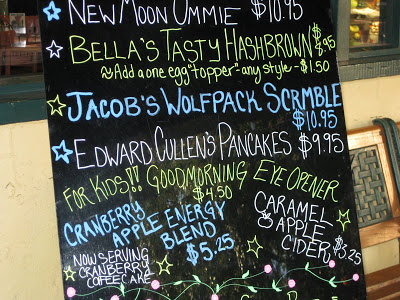 NEW MOON OMMIE $10.95
BELLA'S TASTY HASHBROWN $4.95
~ADD A ONE EGG "TOPPER" ANY STYLE - $1.50
JACOB'S WOLFPACK SCRMBLE
$10.95
EDWARD CULLEN'S PANCAKES $9.95
FOR KIDS!! GOODMORNING EYE OPENER
$4.50
CRANBERRY
APPLE ENERGY
BLEND
$5.25
CARAMEL
APPLE
CIDER
$3.25
NOW SERVING
CRANBERRY
COFFEECAKE